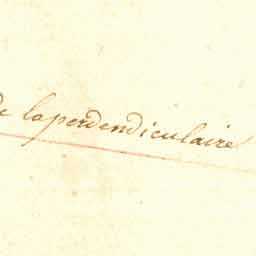 de laperdendiculaire